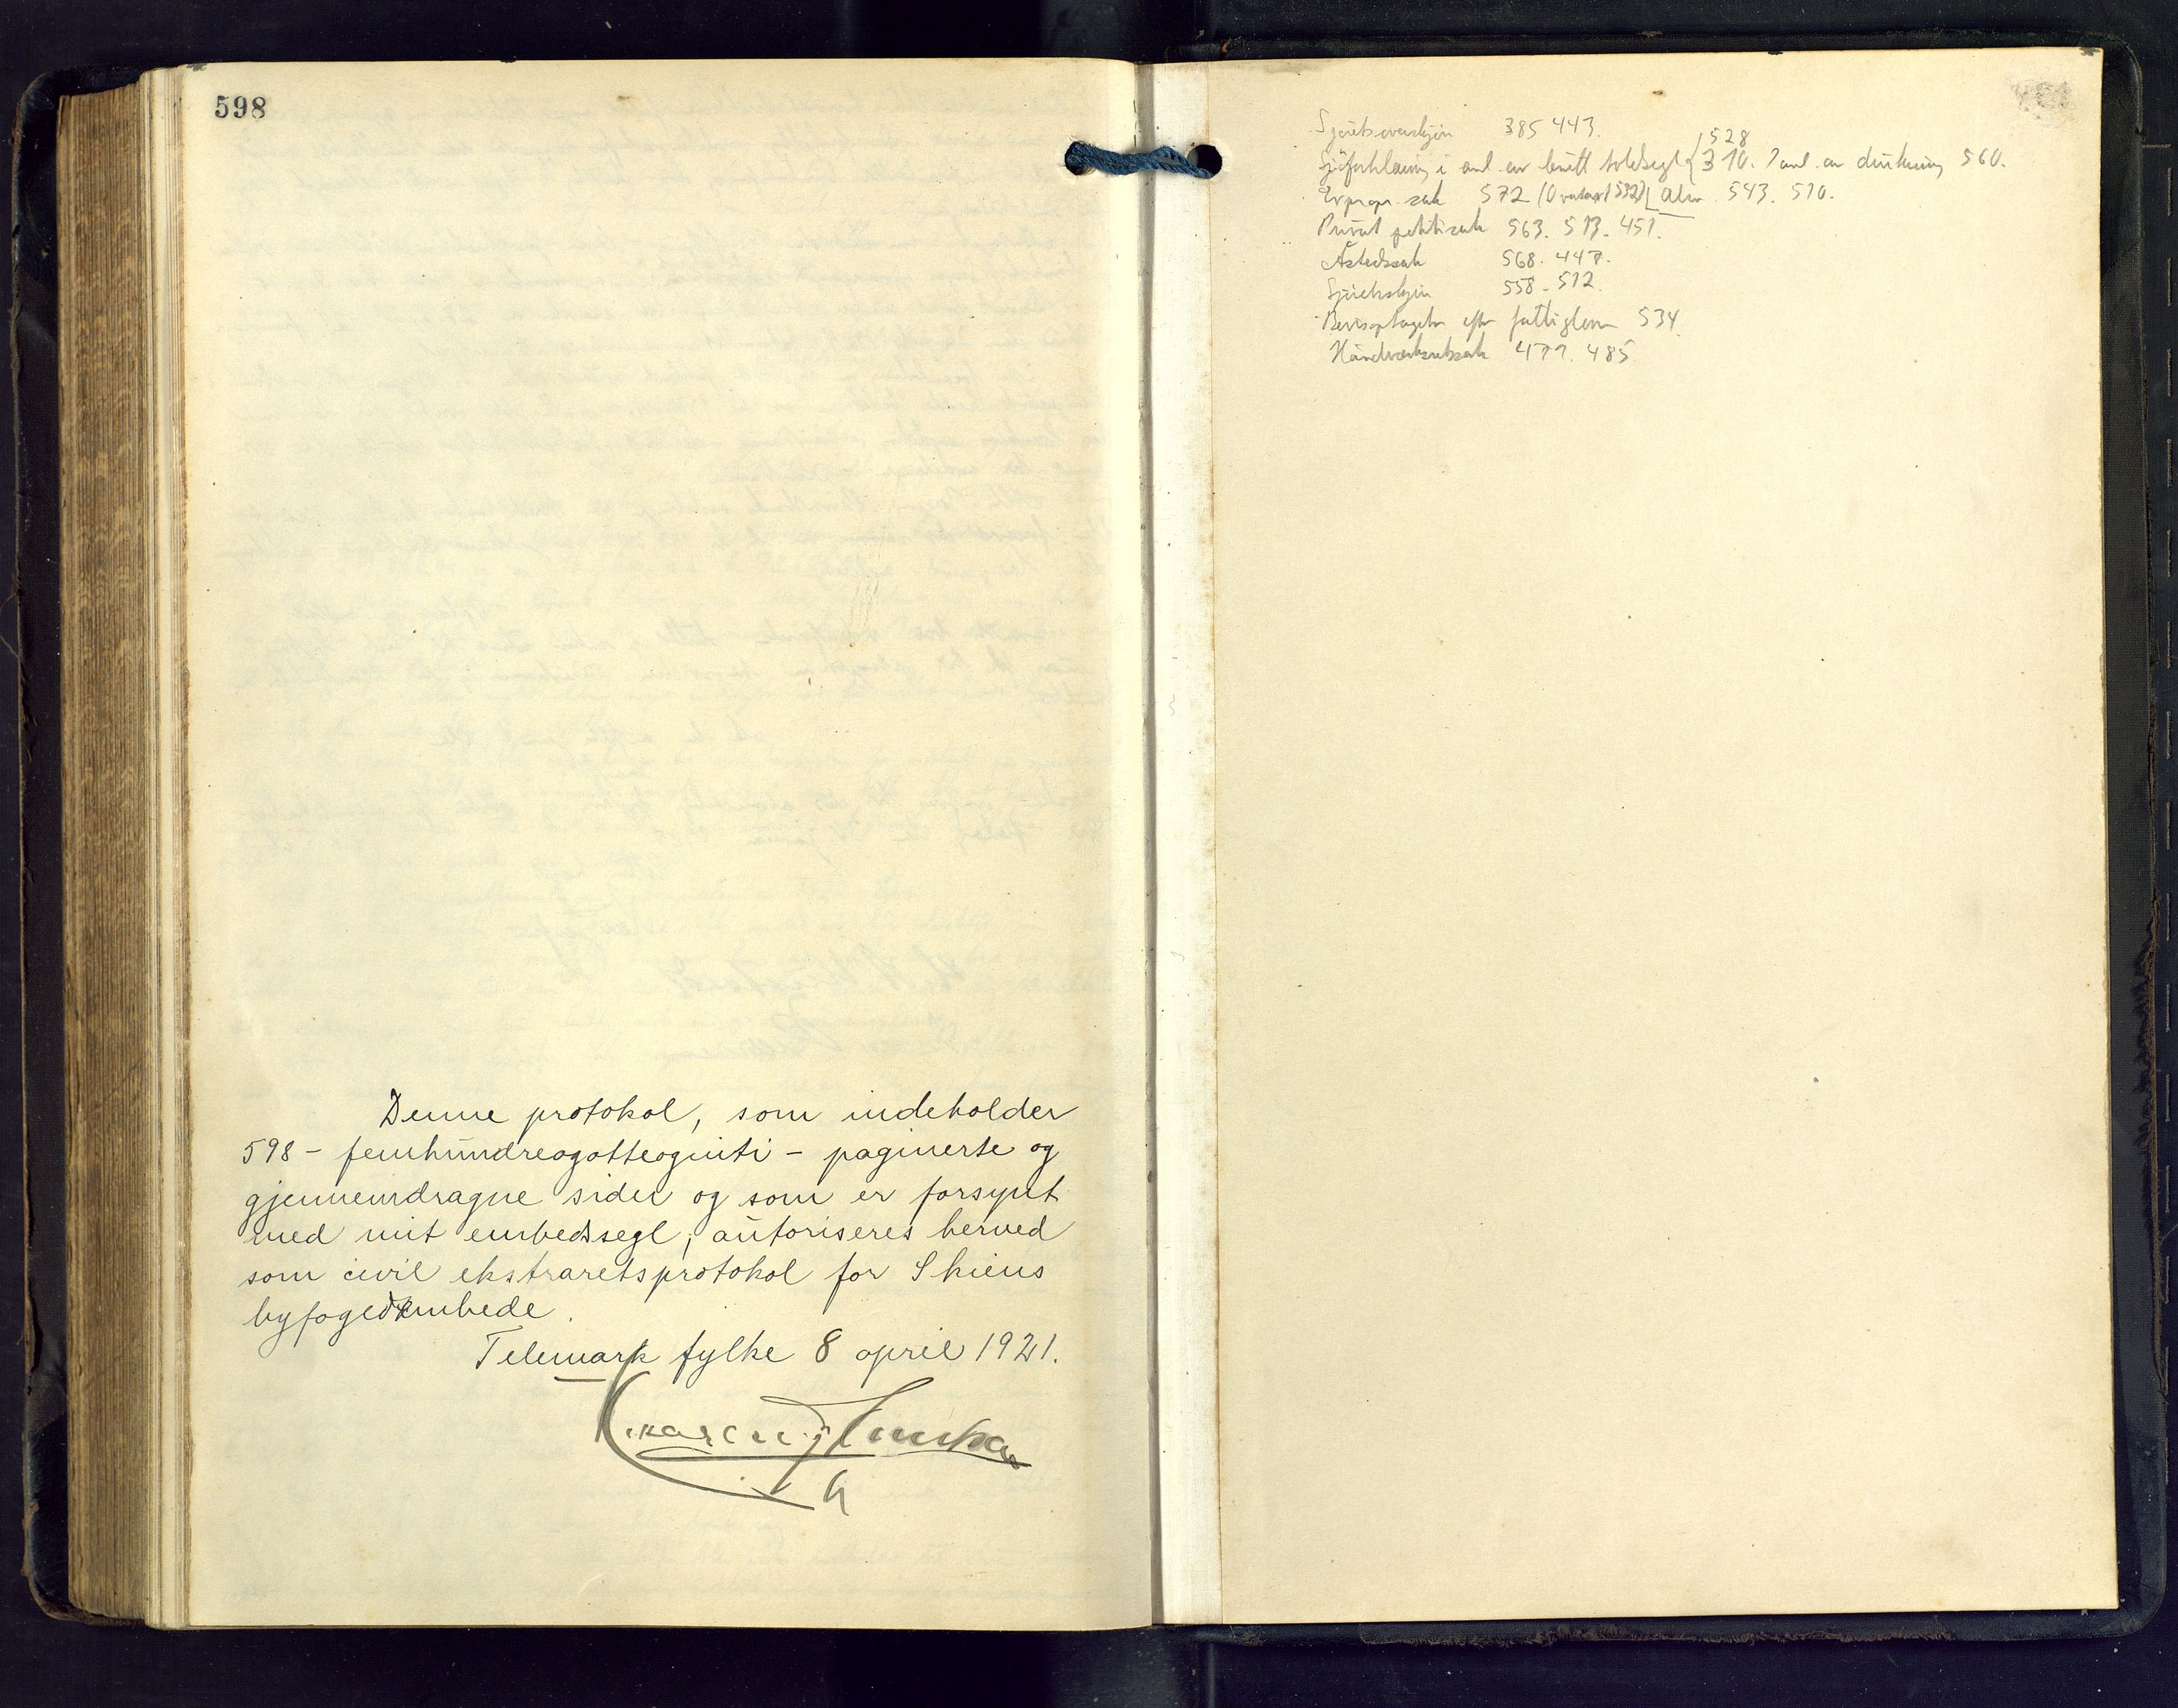 598
Denne protokol, som indeholder
598 - femhundreogotteogniti - paginerte og
gjennemdragne sider og som er forsynt
med mit embedssegl, autoriseres herved
som civil ekstraretsprotokol for Skiens
byfogedembede.
Telemark fylke 8 april 1921.
Sjøretsoverskjøn 385 443.
528
Sjøforklaring i anl. av brutt toldsegl { 310. I anl. av drukning 560.
Expropr. sak 572 Alm. 543. 510.
Privat politisak 563. 513. 451.
Åstedssak 568. 447.
Sjøretsskjøn 558 - 512.
Bevisoptagelse efter fattigloven 534.
Håndverksretssak 477. 485